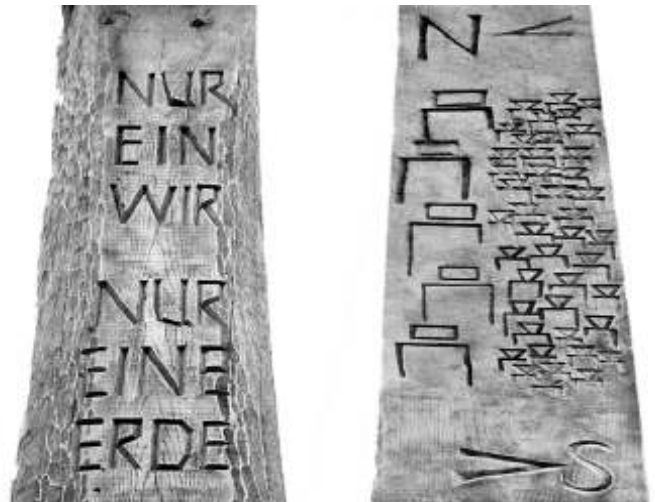 NUR
EIN
WIR
NUR
EINE
ERDE
N <
> S